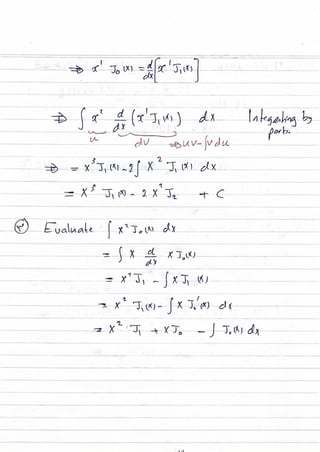 ⇒ x¹ J₀(x) = d/dx [x¹ J₁(x)]
⇒ ∫ x² d/dx (x¹ J₁(x)) dx Integrating by parts.
u dv ⇒ uv - ∫v du
⇒ = x³ J₁(x) - 2∫ x² J₁(x) dx
= x³ J₁(x) - 2 x² J₂ + C
Evaluate ∫ x² J₀(x) dx
= ∫ x d/dx x J₀(x)
= x² J₁ - ∫ x J₁ (x)
= x² J₁(x) - ∫ x J₀'(x) dx
= x² J₁ + x J₀ - ∫ J₀(x) dx